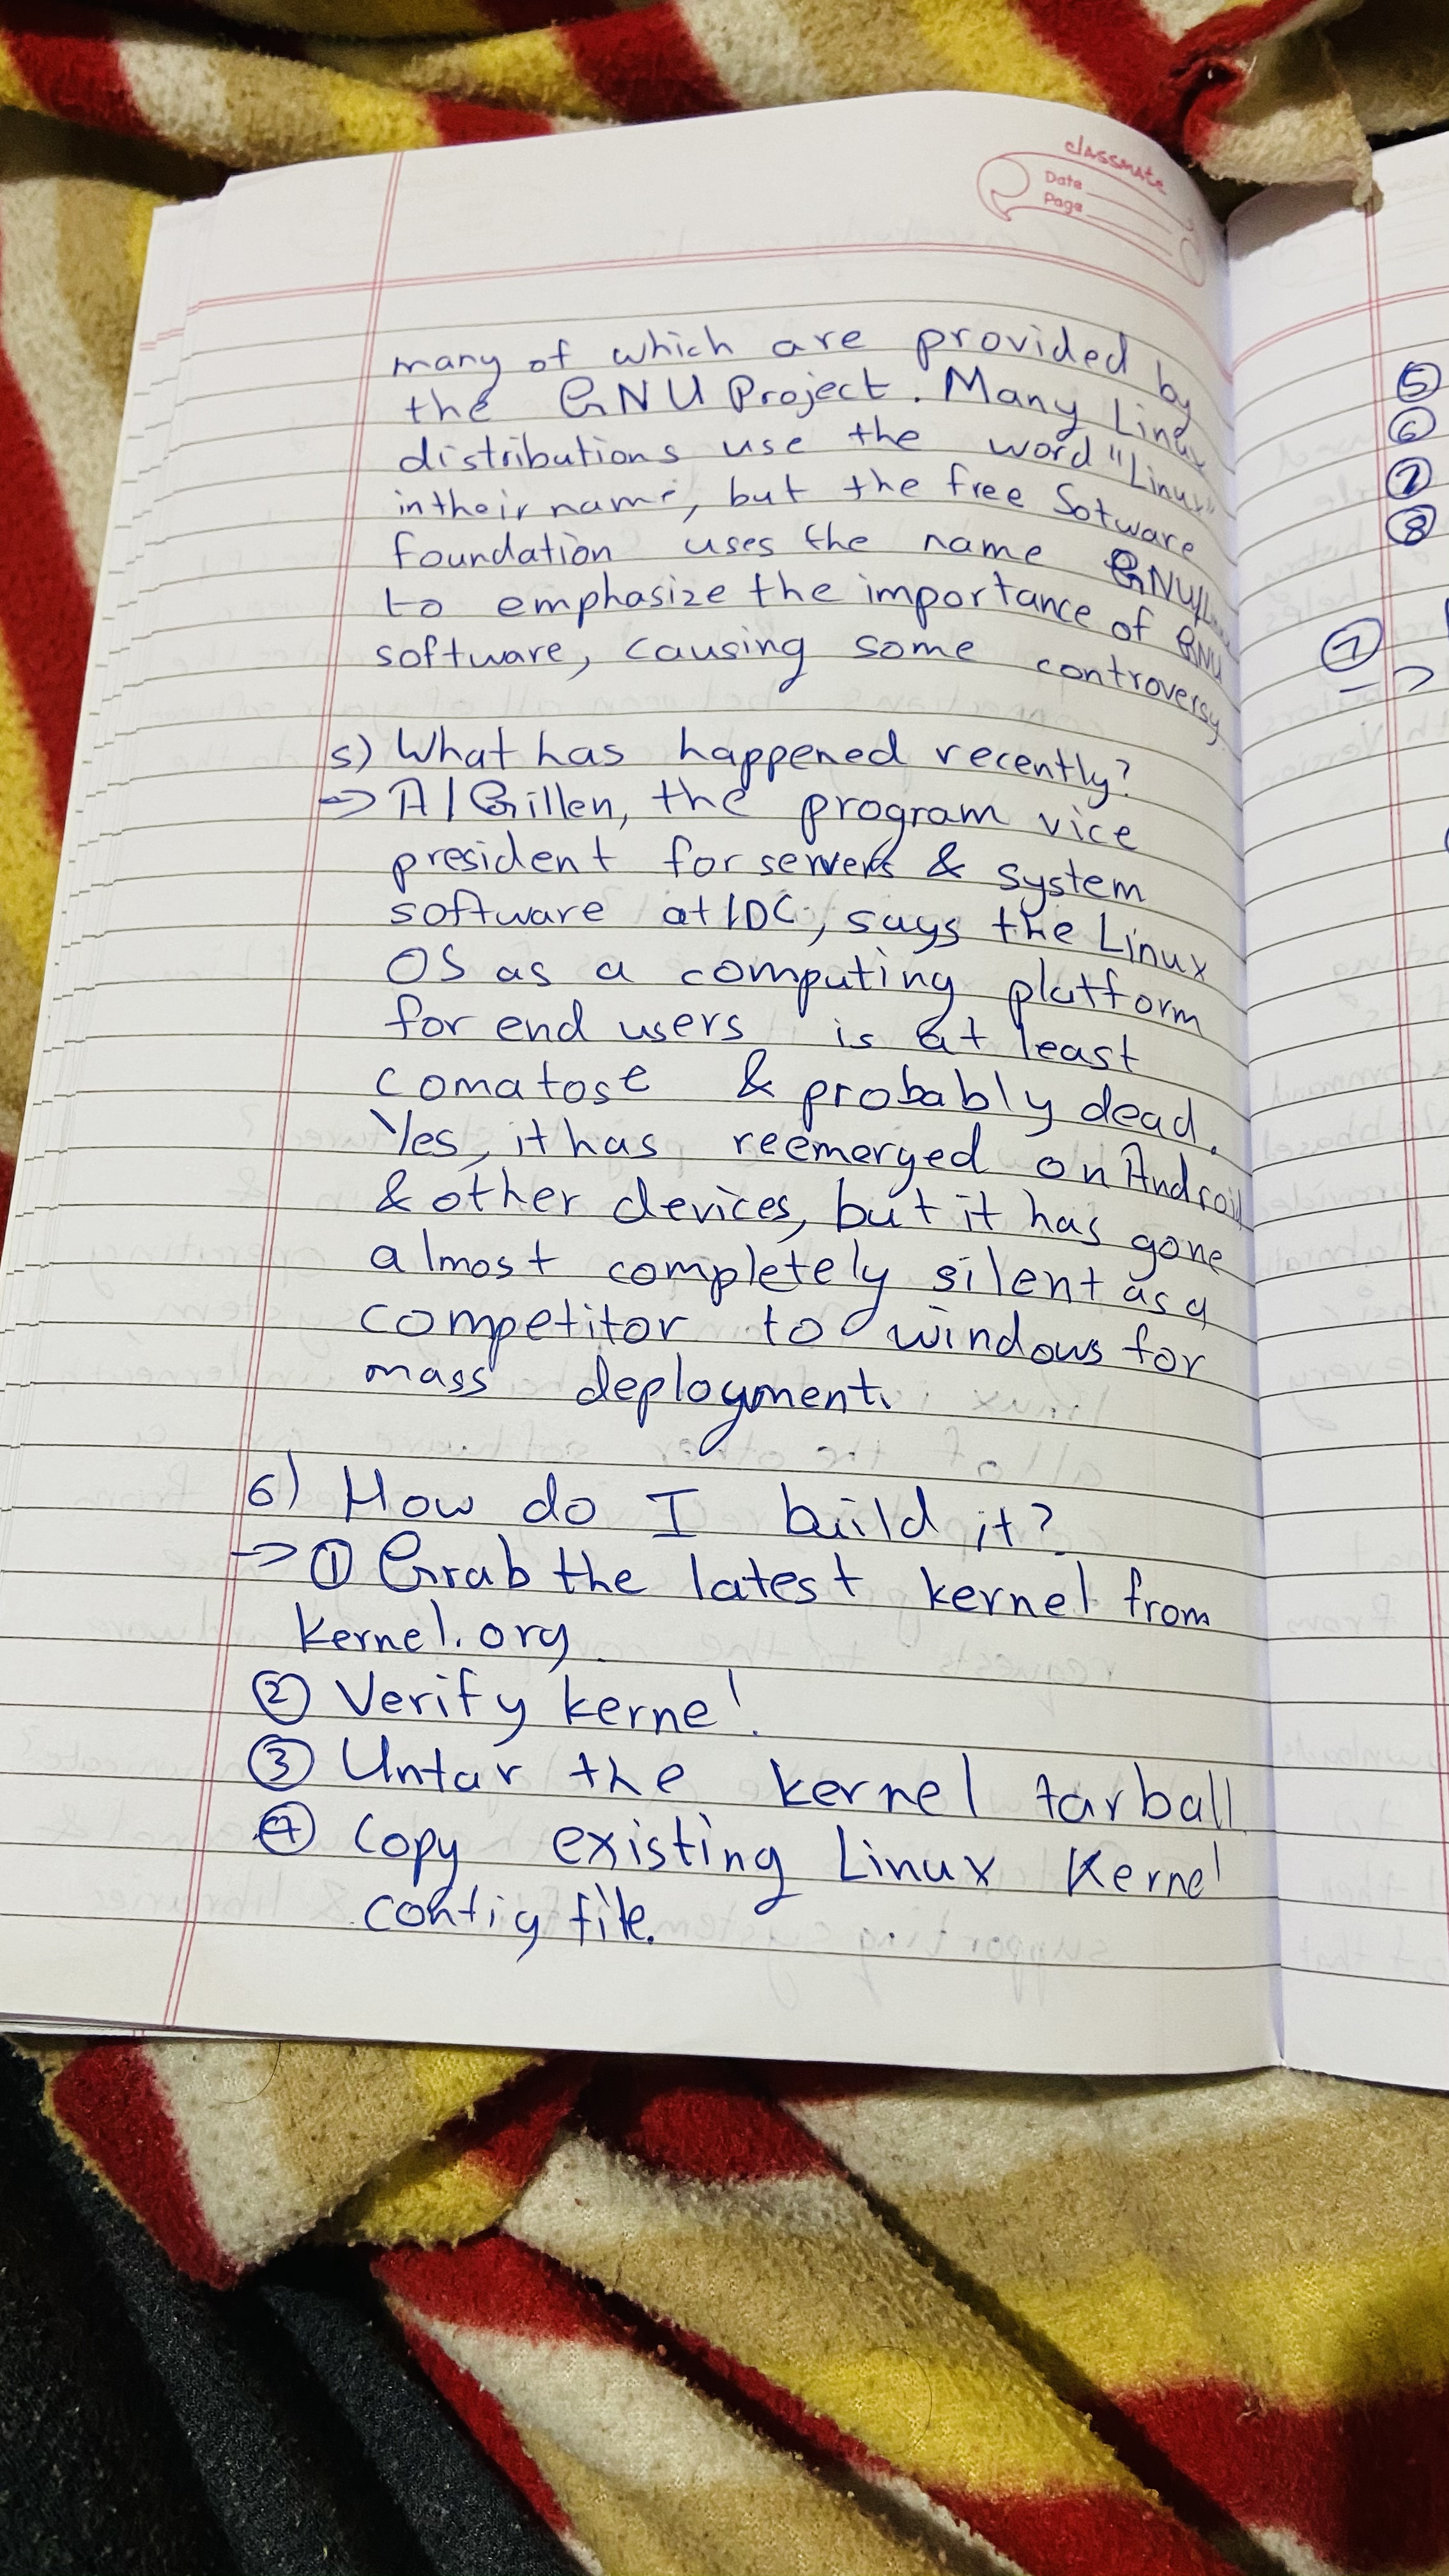 classmate
Date
Page
many of which are provided by
the GNU Project. Many Linux
distributions use the word "Linux"
in their name, but the free Sotware
foundation uses the name GNU/
to emphasize the importance of GNU
software, causing some controversy
5) What has happened recently?
→ Al Gillen, the program vice
president for servers & system
software at IDC, says the Linux
OS as a computing platform
for end users is at least
comatose & probably dead.
Yes, it has reemerged on Android
& other devices, but it has gone
almost completely silent as a
competitor to windows for
mass deployment.
6) How do I build it?
→ ① Grab the latest kernel from
kernel.org
② Verify kernel.
③ Untar the kernel tarball
④ Copy existing Linux Kernel
config file.
⑤
⑥
⑦
⑧
⑦